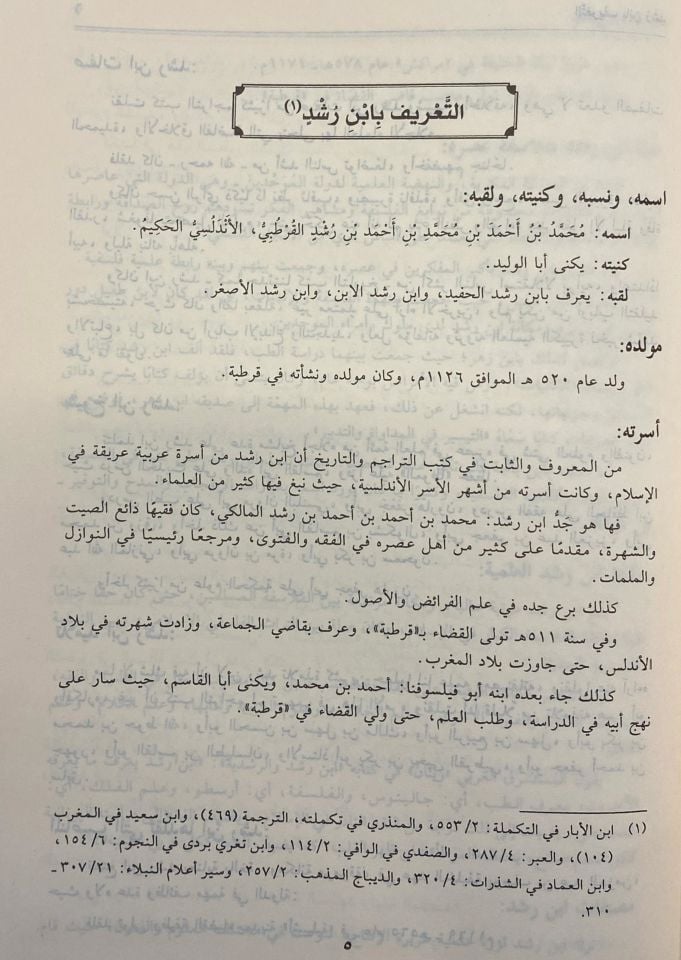 التَّعْرِيف بِابْنِ رُشْدٍ (١)
اسمه، ونسبه، وكنيته، ولقبه:
اسمه: مُحَمَّدُ بْنُ أَحْمَدَ بْنِ مُحَمَّدِ بْنِ أَحْمَدِ بْنِ رُشْدٍ القُرْطُبِيُّ، الأَنْدَلُسِيُّ الحَكِيمُ.
كنيته: يكنى أبا الوليد.
لقبه: يعرف بابن رشد الحفيد، وابن رشد الابن، وابن رشد الأصغر.
مولده:
ولد عام ٥٢٠ هـ الموافق ١١٢٦م، وكان مولده ونشأته في قرطبة.
أسرته:
من المعروف والثابت في كتب التراجم والتاريخ أن ابن رشد من أسرة عربية عريقة في
الإسلام، وكانت أسرته من أشهر الأسر الأندلسية، حيث نبغ فيها كثير من العلماء.
فها هو جَدُّ ابن رشد: محمد بن أحمد بن أحمد بن رشد المالكي، كان فقيهًا ذائع الصيت
والشهرة، مقدمًا على كثير من أهل عصره في الفقه والفتوى، ومرجعًا رئيسيًا في النوازل
والملمات.
كذلك برع جده في علم الفرائض والأصول.
وفي سنة ٥١١هـ تولى القضاء بـ«قرطبة»، وعرف بقاضي الجماعة، وزادت شهرته في بلاد
الأندلس، حتى جاوزت بلاد المغرب.
كذلك جاء بعده ابنه أبو فيلسوفنا: أحمد بن محمد، ويكنى أبا القاسم، حيث سار على
نهج أبيه في الدراسة، وطلب العلم، حتى ولي القضاء في «قرطبة».
(١) ابن الأبار في التكملة: ٥٥٣/٢، والمنذري في تكملته، الترجمة (٤٦٩)، وابن سعيد في المغرب
(١٠٤)، والعبر: ٢٨٧/٤، والصفدي في الوافي: ١١٤/٢، وابن تغري بردى في النجوم: ١٥٤/٦،
وابن العماد في الشذرات: ٣٢٠/٤، والديباج المذهب: ٢٥٧/٢، وسير أعلام النبلاء: ٣٠٧/٢١ ـ
٣١٠.
٥